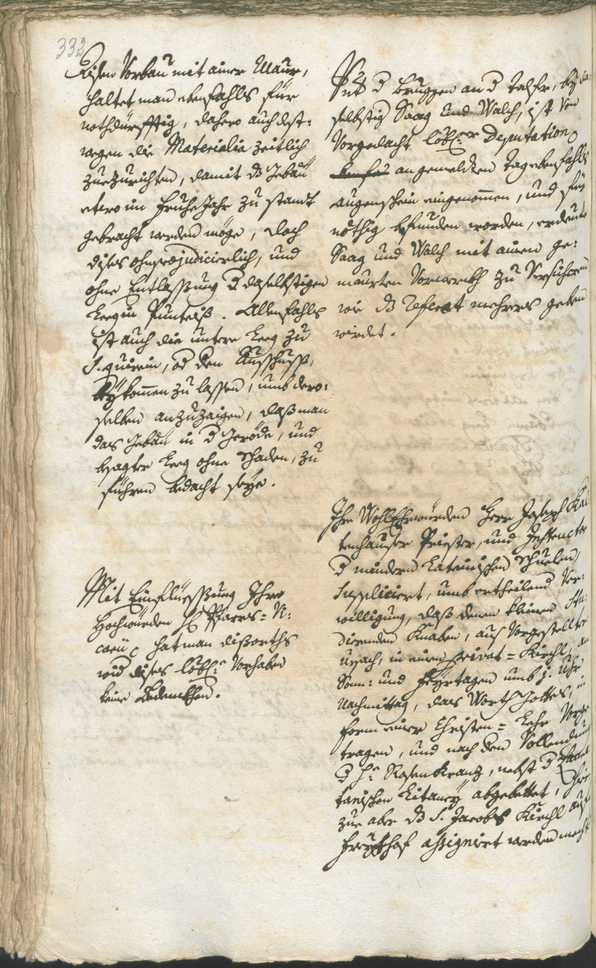 332
disen Vorbau mit ainer Maur,
haltet man ebenfahls für
nothdürfftig, dahero auch dest-
wegen die Materialia zeitlich
zuezurichten, damit ds Gebäu
etwo im Frühe Jahr zu standt
gebracht werden möge, doch
dises ohnpræjudicierlich, und
ohne Entlassung d daselbstigen
Leegin Puntaiß. Allenfahls
ist auch die untere Leeg zu
S. quirein, od den Ausschuss,
bekommen zu lassen, umb dero-
selben anzuzaigen, daß man
das Gebäu in d Geräde, und
besagter Leeg ohne schaden, zu
führen bedacht seye.
Mit Einfliessung Ihro
Hochwürden H: Pfarrs-Vi-
carii hat man dißorths
wid dises löbl: Vorhaben
keine Bedenkhen.
Auf d Bruggen an d Talfer, bey da-
selbstig Saag und Walch, ist von
Vorgedacht löbl:er Deputation
an gemeldten tag ebenfahls
augenschein eingenommen, und für
nöthig befunden worden, erdeute
Saag und Walch mit ainen ge-
maurten Vorwerkh zu Versichern
wie ds Reflext mehrers geben
wirdet.
Ihr Wohlehrwürden Herr Joseph
tenhauser Priester, und Instructor
d mindern Lateinischen Schuelen
Suppliciert, umb ertheilend Ver-
willigung, daß denen kleinen Stu-
dierenden Knaben, aus Vorgestellter
ursach, in einem privat-Kirchl, an
Sonn- und feyrtagen umb 1. Uhr
Nachmittag, das Worth Gottes, in
form einer Christen-Lehr Vorge-
tragen, und nach dem Vollendung
d H: Rosenkranz, nebst d
tanischen Litaney abgebettet,
zue aber ds S. Jacobs Kirchl auf
Freythof assigniert werden mechte